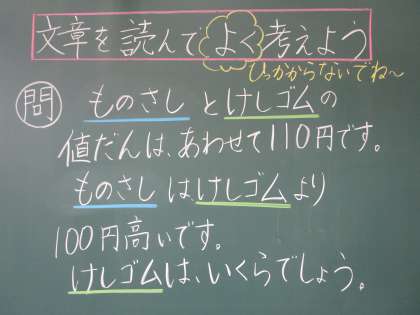 文章を読んでよく考えよう
ひっかからないでね〜
問 ものさしとけしゴムの
値だんは、あわせて110円です。
ものさしはけしゴムより
100円高いです。
けしゴムは、いくらでしょう。